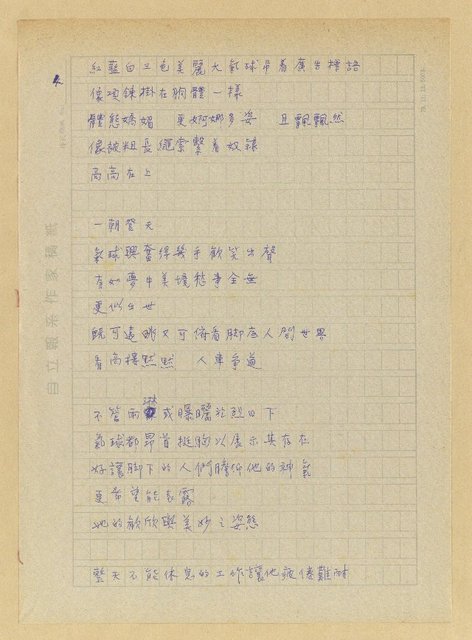 紅藍白三色美麗大氣球吊着廣告標語
像項鍊掛在胸體一樣
體態嬌媚 更婀娜多姿 且飄飄然
像被粗長繩索繫着奴隸
高高在上
一朝登天
氣球興奮得幾乎歡笑出聲
有如夢中美境愁事全無
更似出世
既可遠眺又可俯看脚底人間世界
看高樓點點 人車爭道
不管雨淋或曝曬於烈日下
氣球都昂首挺胸以展示其存在
好讓脚下的人們瞻仰他的神氣
更希望能表露
她的歡欣與美妙之姿態
整天不能休息的工作讓他疲倦難耐
自立晚報作家稿紙